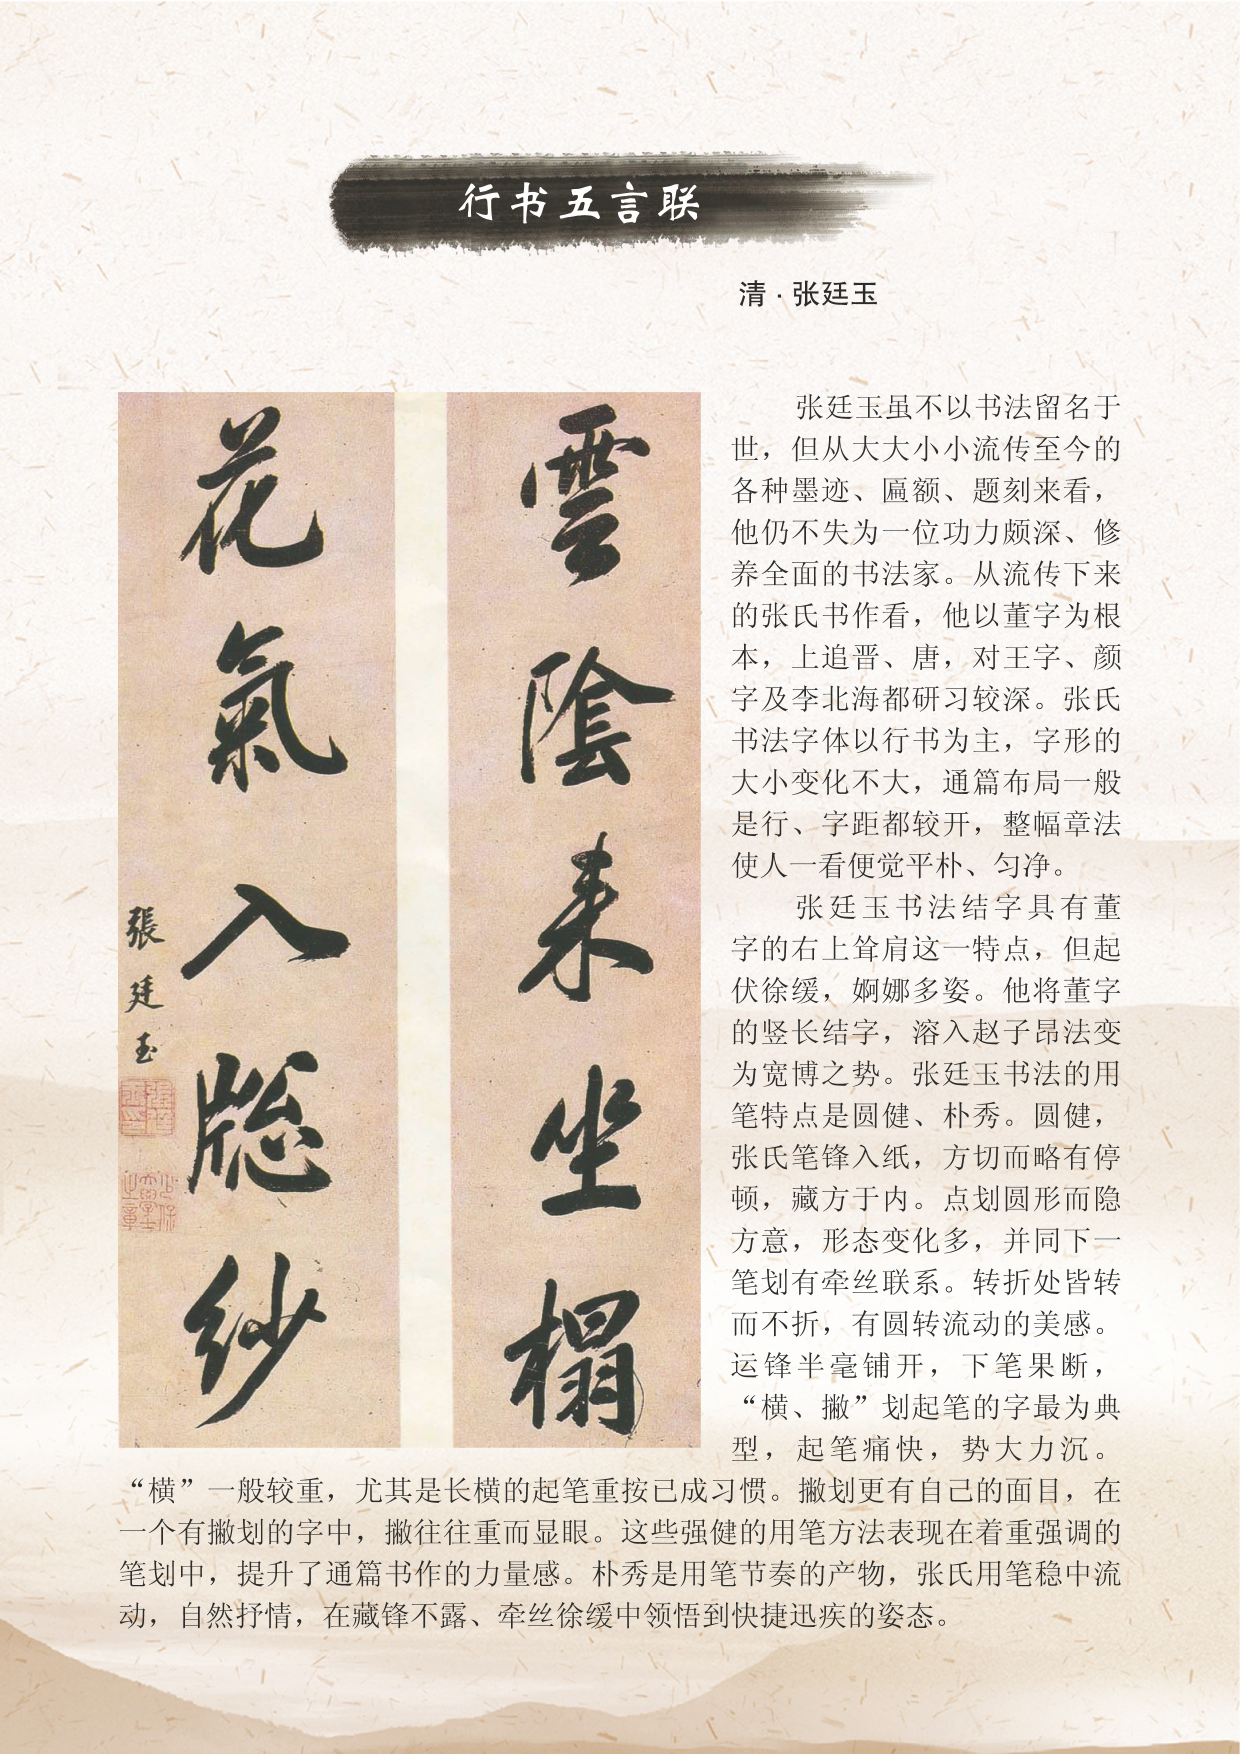 行书五言联
清·张廷玉
雲陰来坐榻
花氣入牕紗
張廷玉
张廷玉虽不以书法留名于
世，但从大大小小流传至今的
各种墨迹、匾额、题刻来看，
他仍不失为一位功力颇深、修
养全面的书法家。从流传下来
的张氏书作看，他以董字为根
本，上追晋、唐，对王字、颜
字及李北海都研习较深。张氏
书法字体以行书为主，字形的
大小变化不大，通篇布局一般
是行、字距都较开，整幅章法
使人一看便觉平朴、匀净。
张廷玉书法结字具有董
字的右上耸肩这一特点，但起
伏徐缓，婀娜多姿。他将董字
的竖长结字，溶入赵子昂法变
为宽博之势。张廷玉书法的用
笔特点是圆健、朴秀。圆健，
张氏笔锋入纸，方切而略有停
顿，藏方于内。点划圆形而隐
方意，形态变化多，并同下一
笔划有牵丝联系。转折处皆转
而不折，有圆转流动的美感。
运锋半毫铺开，下笔果断，
“横、撇”划起笔的字最为典
型，起笔痛快，势大力沉。
“横”一般较重，尤其是长横的起笔重按已成习惯。撇划更有自己的面目，在
一个有撇划的字中，撇往往重而显眼。这些强健的用笔方法表现在着重强调的
笔划中，提升了通篇书作的力量感。朴秀是用笔节奏的产物，张氏用笔稳中流
动，自然抒情，在藏锋不露、牵丝徐缓中领悟到快捷迅疾的姿态。